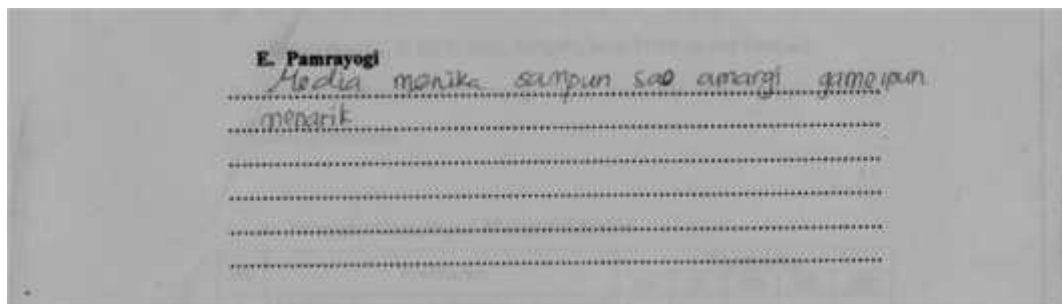 E. Pamrayogi
Media menika sampun sae amargi gameipun
menarik